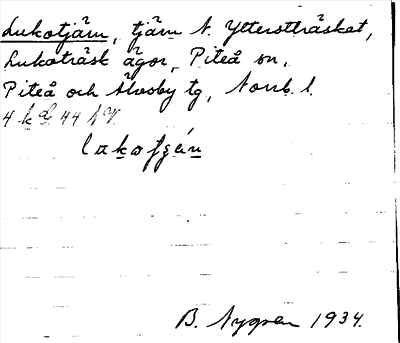 Lukotjärn, tjärn N. Ytterstträsket,
Lukoträsk ägor, Piteå sn,
Piteå och Älvsby tg, Norrb. l.
4 k 44 NV.
B. Nygren 1934.